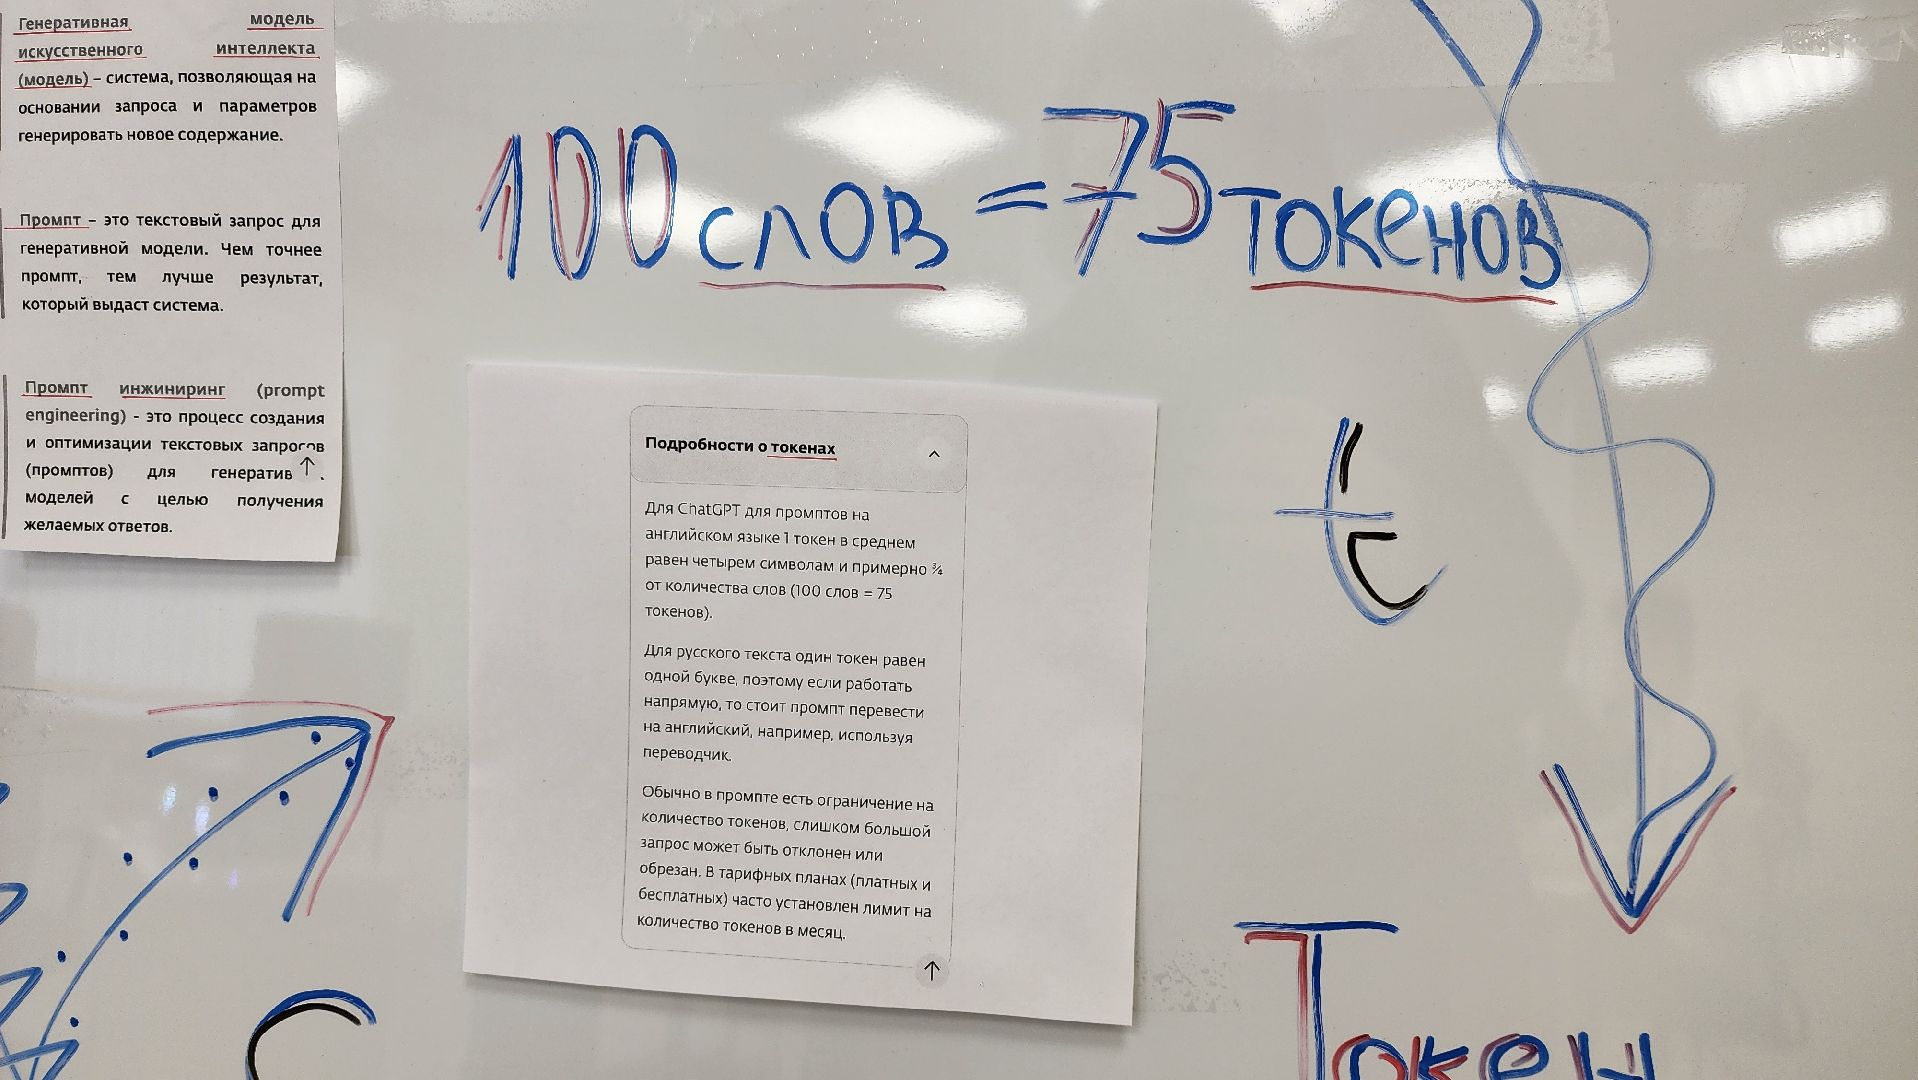 Генеративная модель
искусственного интеллекта
(модель) – система, позволяющая на
основании запроса и параметров
генерировать новое содержание.
Промпт – это текстовый запрос для
генеративной модели. Чем точнее
промпт, тем лучше результат,
который выдаст система.
Промпт инжиниринг (prompt
engineering) - это процесс создания
и оптимизации текстовых запросов
(промптов) для генератив
моделей с целью получения
желаемых ответов.
100 слов = 75 токенов
Подробности о токенах
Для ChatGPT для промптов на
английском языке 1 токен в среднем
равен четырем символам и примерно ¾
от количества слов (100 слов = 75
токенов).
Для русского текста один токен равен
одной букве, поэтому если работать
напрямую, то стоит промпт перевести
на английский, например, используя
переводчик.
Обычно в промпте есть ограничение на
количество токенов, слишком большой
запрос может быть отклонен или
обрезан. В тарифных планах (платных и
бесплатных) часто установлен лимит на
количество токенов в месяц.
t
С
Токен